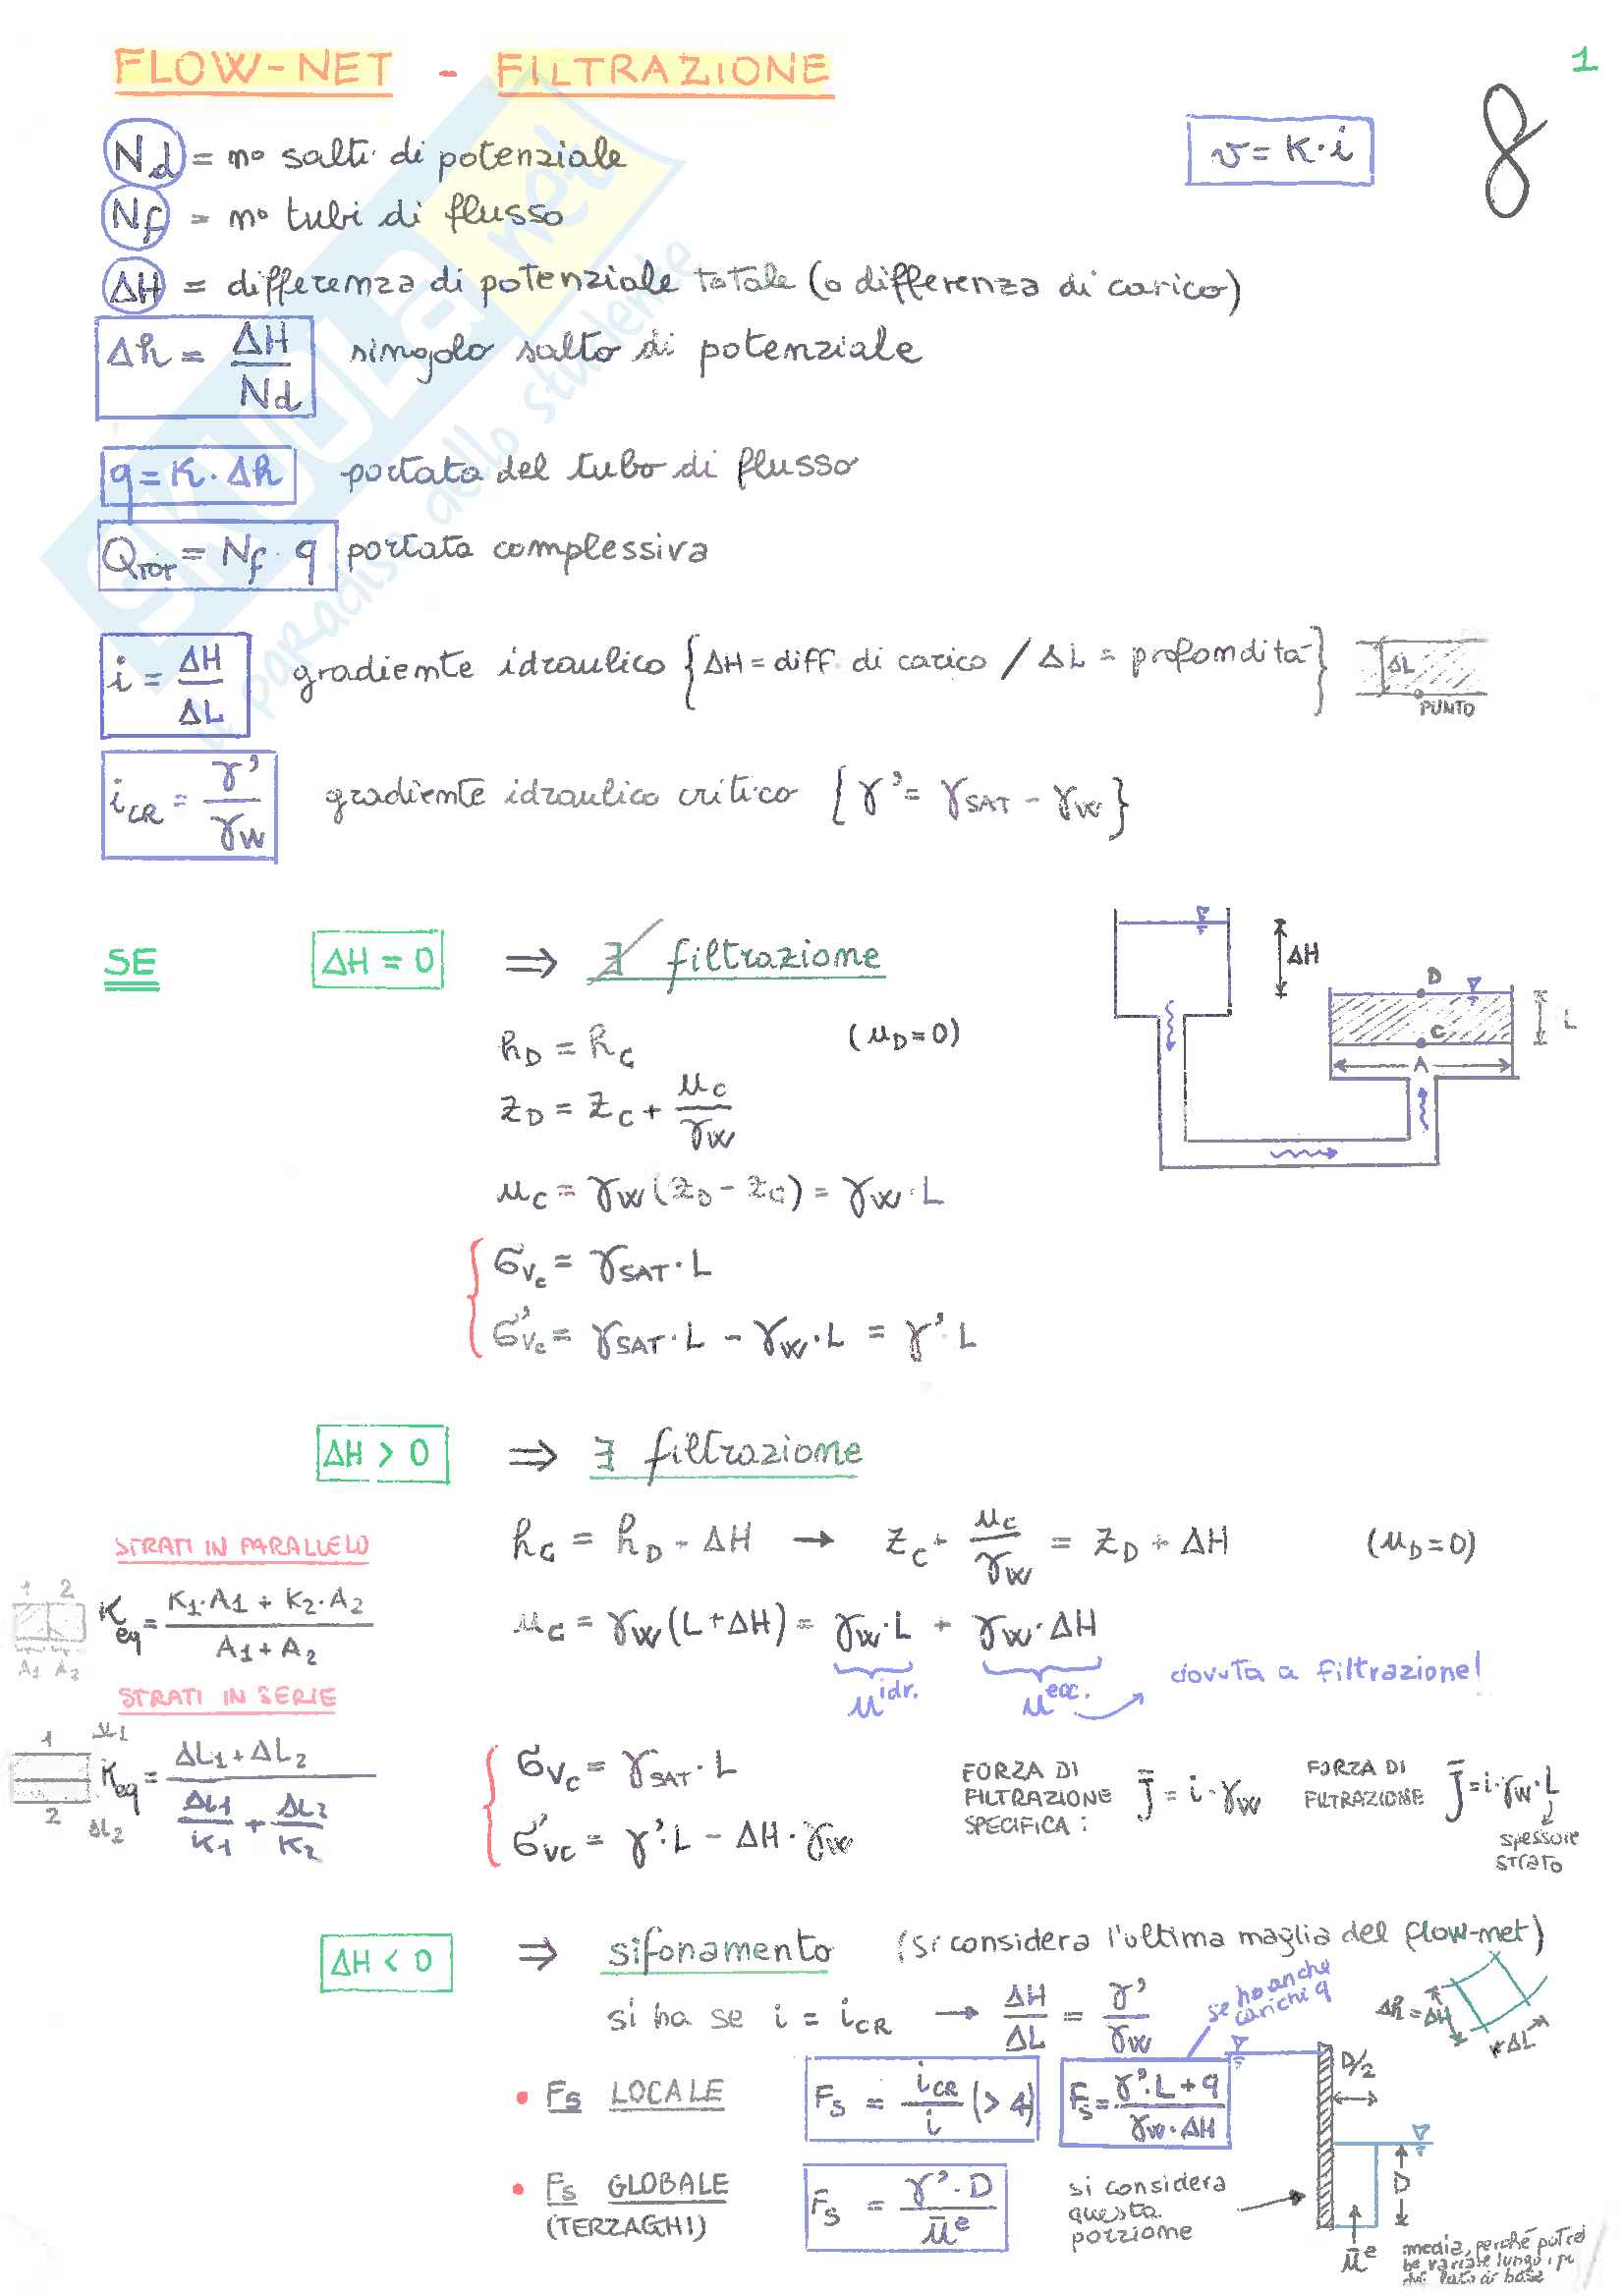 1
FLOW-NET - FILTRAZIONE
8
Nd = n° salti di potenziale
v = K·i
Nf = n° tubi di flusso
ΔH = differenza di potenziale totale (o differenza di carico)
Δh = ΔH / Nd singolo salto di potenziale
q = K·Δh portata del tubo di flusso
QTOT = Nf · q portata complessiva
i = ΔH / ΔL gradiente idraulico {ΔH = diff. di carico / ΔL = profondità}
ΔL
PUNTO
iCR = γ' / γW gradiente idraulico critico {γ' = γSAT - γW}
SE ΔH = 0 ⇒ ∄ filtrazione
ΔH
D
C
L
A
hD = hC (uD=0)
zD = zC + uC / γW
uC = γW (zD - zC) = γW·L
σVC = γSAT·L
σ'VC = γSAT·L - γW·L = γ'·L
ΔH > 0 ⇒ ∃ filtrazione
hC = hD + ΔH → zC + uC / γW = zD + ΔH (uD=0)
uC = γW (L+ΔH) = γW·L + γW·ΔH
u idr. u ecc. dovuta a filtrazione!
STRATI IN PARALLELO
1 2
A1 A2
Keq = K1·A1 + K2·A2 / A1 + A2
STRATI IN SERIE
1 ΔL1
2 ΔL2
Keq = ΔL1+ΔL2 / ΔL1/K1 + ΔL2/K2
σVC = γSAT·L
σ'VC = γ'·L - ΔH·γW
FORZA DI
FILTRAZIONE
SPECIFICA: J̄ = i·γW
FORZA DI
FILTRAZIONE J̄ = i·γW·L
spessore
strato
ΔH < 0 ⇒ sifonamento (si considera l'ultima maglia del flow-net)
si ha se i = iCR → ΔH / ΔL = γ' / γW
se ho anche
carichi q
Δh = ΔH
ΔL
• Fs LOCALE Fs = iCR / i (> 4) Fs = γ'·L + q / γW·ΔH
D/2
D
• Fs GLOBALE
(TERZAGHI) Fs = γ'·D / ūe
si considera
questa
porzione
ūe
media, perché potreb
be variare lungo i
lato di base
SKUOLA.net
il paradiso dello studente